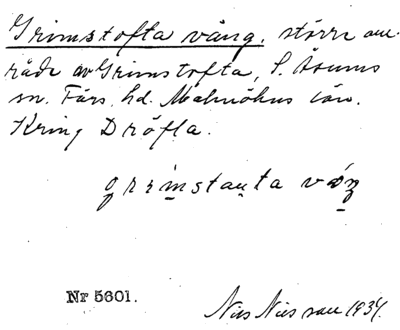 Grimstofta vång. större om-
råde av Grimstofta, S. Åsums
sn. Färs hd. Malmöhus län.
Kring Dröfla.
grimstaųta våŋ
Nr 5601.
Nils Nilsson 1934.